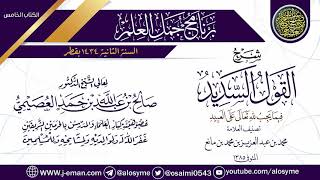 الكتاب الخامس
برنامج جمل العلم
السنة الثانية ١٤٣٤ بقطر
شرح
القول السديد
فيما يجب لله تعالى على العبيد
تصنيف العلامة
محمد بن عبد العزيز بن محمد بن مانع
المتوفى ١٣٨٥
لمعالي الشيخ الدكتور
صالح بن عبد الله بن حمد العصيمي
عضو هيئة كبار العلماء والمدرس بالحرمين الشريفين
غفر الله له ولوالديه ولمشايخه وللمسلمين
www.j-eman.com
@alosyme
@osaimi0543
youtube.com/alosyme